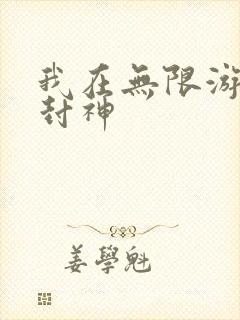 我在無限游
封神
姜學魁